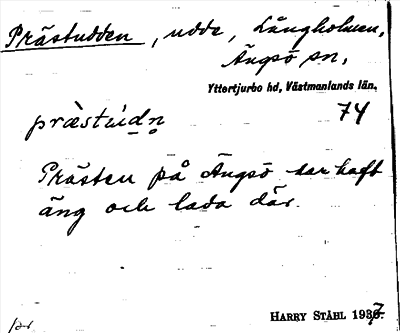 Prästudden, udde, Långholmen,
Ängsö sn,
Yttertjurbo hd, Västmanlands län.
74
præ̀stúdṇ
Prästen på Ängsö har haft
äng och lada där.
HARRY STÅHL 1937.